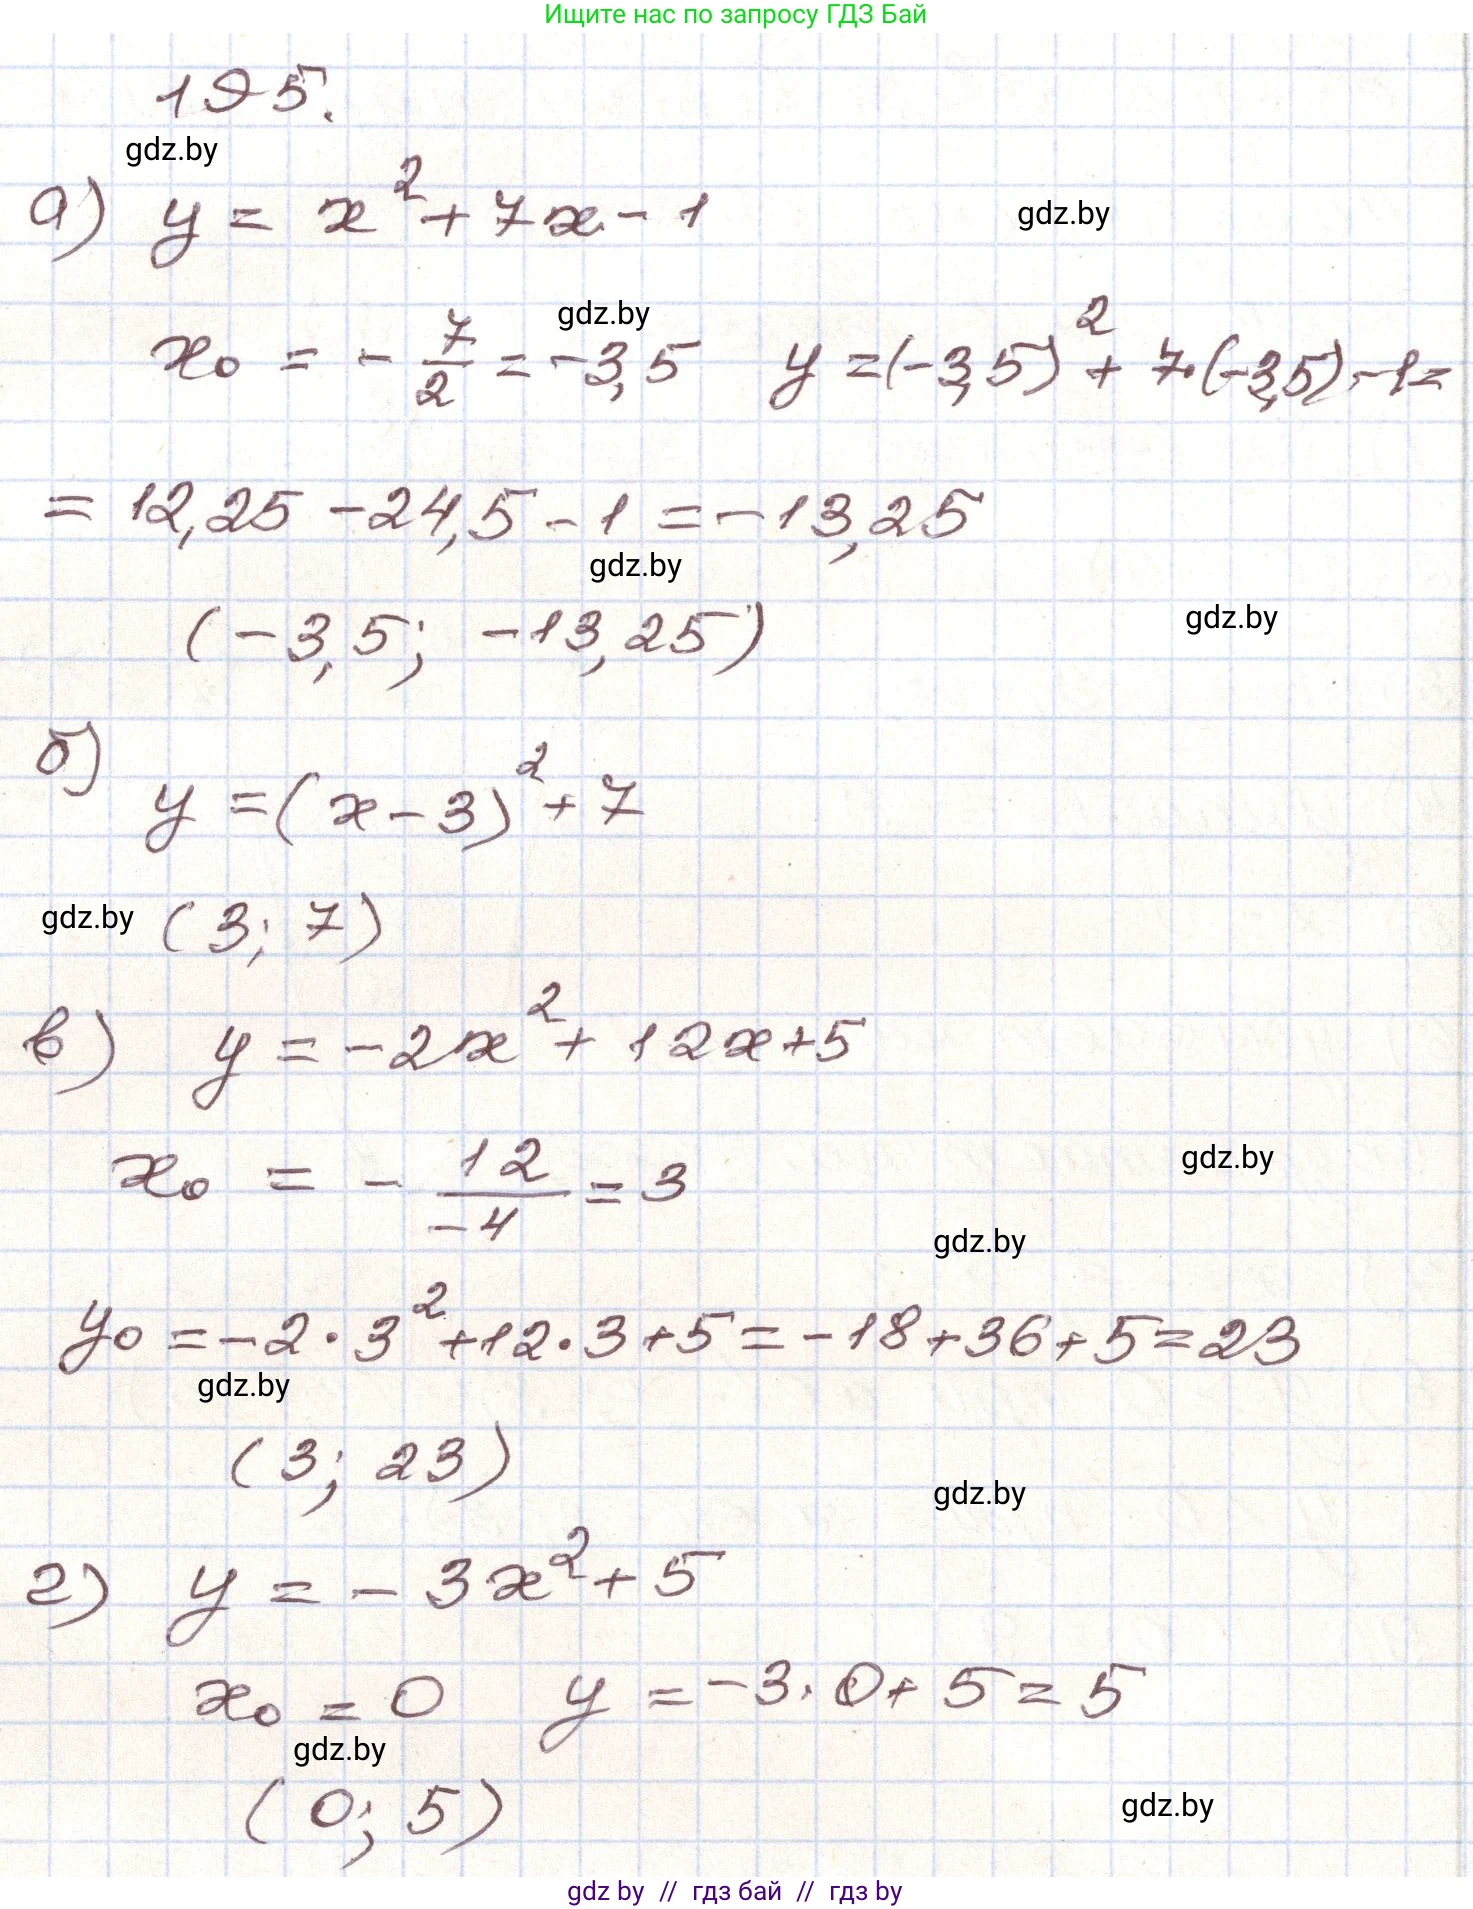 Ищите нас по запросу ГДЗ Бай
195.
gdz.by
а) y = x² + 7x - 1
gdz.by
gdz.by
x₀ = - 7/2 = -3,5 y = (-3,5)² + 7·(-3,5) - 1 =
= 12,25 - 24,5 - 1 = -13,25
gdz.by
(-3,5; -13,25)
gdz.by
б) y = (x - 3)² + 7
gdz.by
(3; 7)
в) y = -2x² + 12x + 5
x₀ = - 12/-4 = 3
gdz.by
gdz.by
y₀ = -2·3² + 12·3 + 5 = -18 + 36 + 5 = 23
gdz.by
(3; 23)
gdz.by
г) y = -3x² + 5
x₀ = 0 y = -3·0 + 5 = 5
gdz.by
(0; 5)
gdz.by
gdz by // гдз бай // гдз by